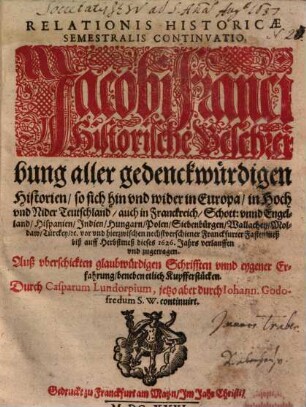 RELATIONIS HISTORICÆ
SEMESTRALIS CONTINVATIO,
Jacobi Franci
Historische Beschrei-
bung aller gedenckwürdigen
Historien / so sich hin vnd wider in Europa / in Hoch
vnd Nider Teutschland / auch in Franckreich / Schott: vnnd Engel-
land / Hispanien / Indien / Hungarn / Polen / Siebenbürgen / Wallachey / Mol-
daw / Türckey / ꝛc. vor vnd hierzwischen nechstverschiener Franckfurter Fastenmeß
biß auff Herbstmeß dieses 1626. Jahrs verlauffen
vnd zugetragen.
Auß vberschickten glaubwürdigen Schrifften vnnd eygener Er-
fahrung / beneben etlich Kupfferstücken.
Durch Casparum Lundorpium, jetzo aber durch Iohann. Godo-
fredum S. W. continuirt.
Gedruckt zu Franckfurt am Mayn / Im Jahr Christi /